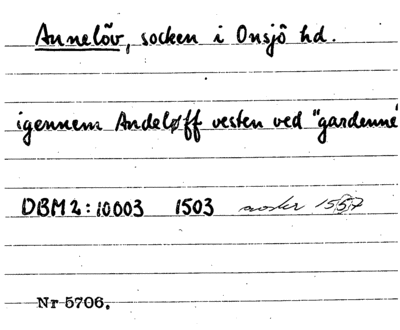 Annelöv, socken i Onsjö hd.
igennem Andeløff vesten ved "gardenne"
DBM 2:10003 1503 avskr 1557
Nr 5706.